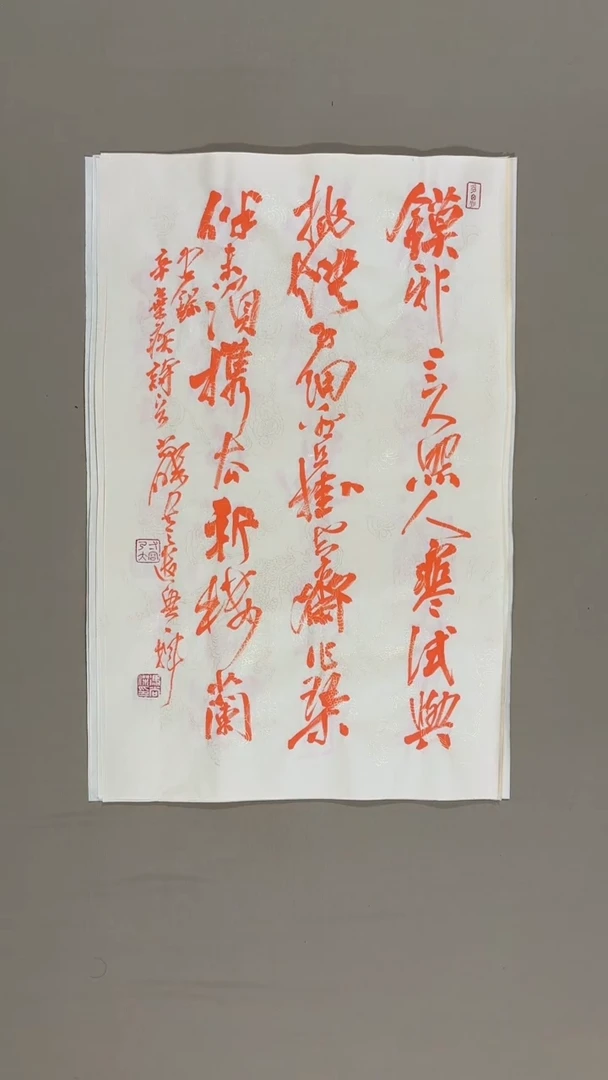 鏌邪三尺照人寒試與
挑燈子細看且掛空齋作琴
伴未須攜去斬樓蘭
辛棄疾詩